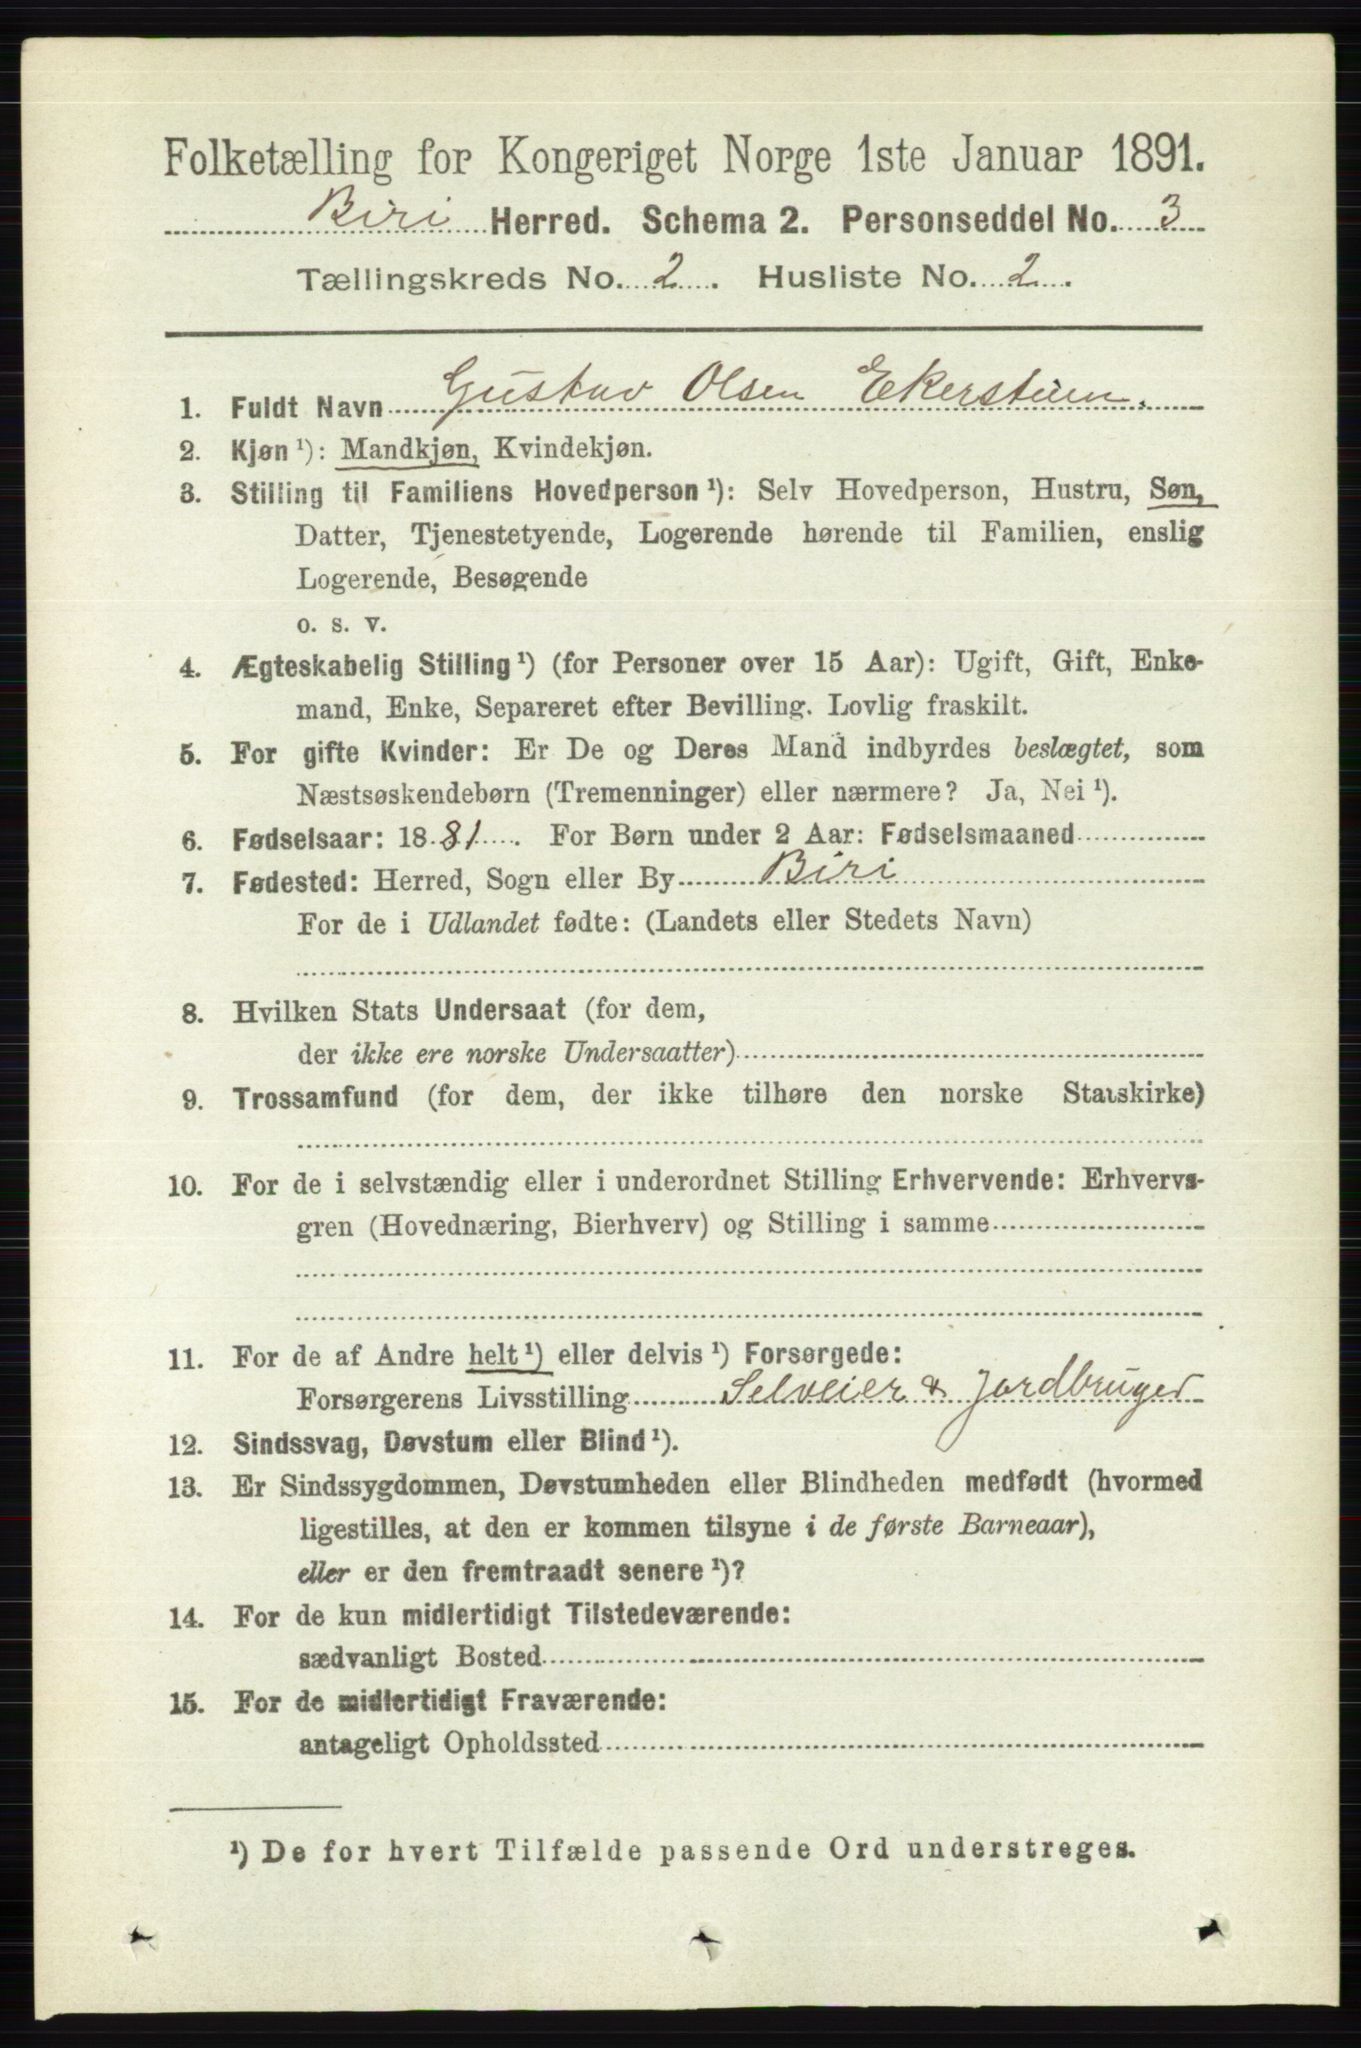 Folketælling for Kongeriget Norge 1ste Januar 1891.
Biri Herred. Schema 2. Personseddel No. 3
Tællingskreds No. 2. Husliste No. 2.
1. Fuldt Navn Gustav Olsen Ekerstuen.
2. Kjøn ¹): Mandkjøn, Kvindekjøn.
3. Stilling til Familiens Hovedperson ¹): Selv Hovedperson, Hustru, Søn,
Datter, Tjenestetyende, Logerende hørende til Familien, enslig
Logerende, Besøgende
o. s. v.
4. Ægteskabelig Stilling ¹) (for Personer over 15 Aar): Ugift, Gift, Enke-
mand, Enke, Separeret efter Bevilling. Lovlig fraskilt.
5. For gifte Kvinder: Er De og Deres Mand indbyrdes beslægtet, som
Næstsøskendebørn (Tremenninger) eller nærmere? Ja, Nei ¹).
6. Fødselsaar: 1881. For Børn under 2 Aar: Fødselsmaaned
7. Fødested: Herred, Sogn eller By Biri
For de i Udlandet fødte: (Landets eller Stedets Navn)
8. Hvilken Stats Undersaat (for dem,
der ikke ere norske Undersaatter)
9. Trossamfund (for dem, der ikke tilhøre den norske Statskirke)
10. For de i selvstændig eller i underordnet Stilling Erhvervende: Erhvervs-
gren (Hovednæring, Bierhverv) og Stilling i samme
11. For de af Andre helt ¹) eller delvis ¹) Forsørgede:
Forsørgerens Livsstilling Selveier & Jordbruger
12. Sindssvag, Døvstum eller Blind ¹).
13. Er Sindssygdommen, Døvstumheden eller Blindheden medfødt (hvormed
ligestilles, at den er kommen tilsyne i de første Barneaar),
eller er den fremtraadt senere ¹)?
14. For de kun midlertidigt Tilstedeværende:
sædvanligt Bosted
15. For de midlertidigt Fraværende:
antageligt Opholdssted
¹) De for hvert Tilfælde passende Ord understreges.